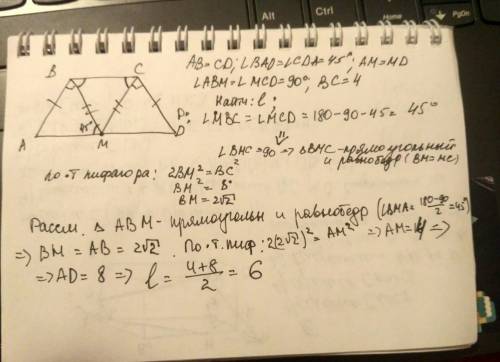 Alt
Ctrl
Home
PgDn
B
C
A
M
D
45°
AB=CD; ∠BAD=∠CDA=45°; AM=MD
∠ABM=∠MCD=90°; BC=4
Найти: ℓ
∠MBC=∠MCD=180-90-45=45°
∠BMC=90 => ΔBMC-прямоугольный
и равнобедр (BM=MC)
по.т пифагора: 2BM²=BC²
BM²=8
BM=2√2
Рассм. Δ ABM-прямоугольн и равнобедр (∠BMA=(180-90)/2=45°)
=> BM=AB=2√2. По.т.пиф: 2(2√2)²=AM² => AM=4 =>
=> AD=8 => ℓ=(4+8)/2=6